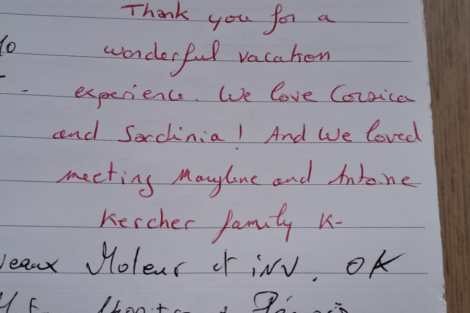 Thank you for a
wonderful vacation
experience. We love Corsica
and Sardinia! And We loved
meeting Maryline and Antoine
Kercher family K-
veaux Moteur et INV. OK